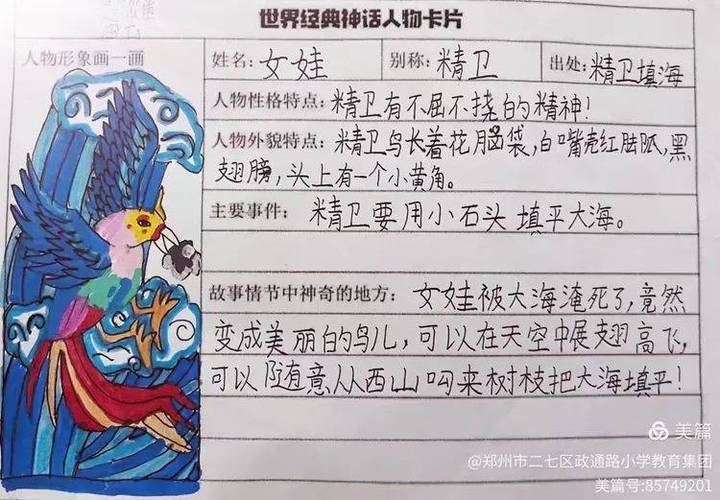 世界经典神话人物卡片
人物形象画一画
姓名: 女娃
别称: 精卫
出处: 精卫填海
人物性格特点: 精卫有不屈不挠的精神!
人物外貌特点: 精卫鸟长着花脑袋,白嘴壳红
翅膀,头上有一个小黄角。
主要事件: 精卫要用小石头填平大海。
故事情节中神奇的地方: 女娃被大海淹死了,竟然
变成美丽的鸟儿,可以在天空中展翅高飞,
可以随意从西山叼来树枝把大海填平!
美篇
@郑州市二七区政通路小学教育集团
美篇号:85749201